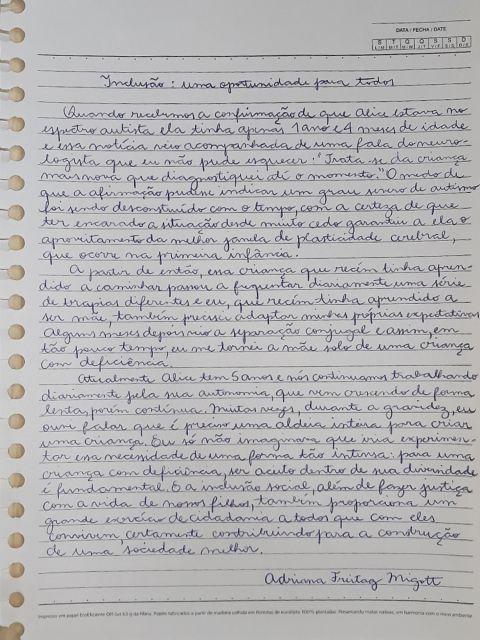 DATA / FECHA / DATE
S T Q Q S S D
Inclusão: uma oportunidade para todos
Quando recebemos a confirmação de que Alice estava no
espectro autista ela tinha apenas 1 ano e 4 meses de idade
e essa notícia veio acompanhada de uma fala do neuro-
logista que eu não pude esquecer: "Trata-se da criança
mais nova que diagnostiquei até o momento." O medo de
que a afirmação pudesse indicar um grau severo de autismo
foi sendo desconstruído com o tempo, com a certeza de que
ter encarado a situação desde muito cedo garantiu a ela o
aproveitamento da melhor janela de plasticidade cerebral,
que ocorre na primeira infância.
A partir de então, essa criança que recém tinha apren-
dido a caminhar passou a frequentar diariamente uma série
de terapias diferentes e eu, que recém tinha aprendido a
ser mãe, também precisei adaptar minhas próprias expectativas.
Alguns meses depois veio a separação conjugal e assim, em
tão pouco tempo, eu me tornei a mãe solo de uma criança
com deficiência.
Atualmente Alice tem 5 anos e nós continuamos trabalhando
diariamente pela sua autonomia, que vem crescendo de forma
lenta, porém contínua. Muitas vezes, durante a gravidez, eu
ouvi falar que é preciso uma aldeia inteira para criar
uma criança. Eu só não imaginava que iria experimen-
tar essa necessidade de uma forma tão intensa: para uma
criança com deficiência, ser aceito dentro de sua diversidade
é fundamental. E a inclusão social, além de fazer justiça
com a vida de nossos filhos, também proporciona um
grande exercício de cidadania a todos que com eles
convivem, certamente contribuindo para a construção
de uma sociedade melhor.
Adriana Freitag Migott